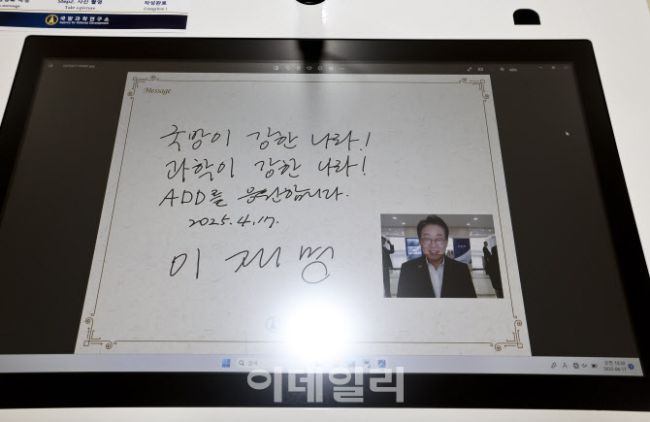 Step2. 사진 촬영
Take a picture
작성완료
국방과학연구소
Agency for Defense Development
Message
국방이 강한 나라!
과학이 강한 나라!
ADD를 응원합니다.
2025.4.17.
이재명
이데일리